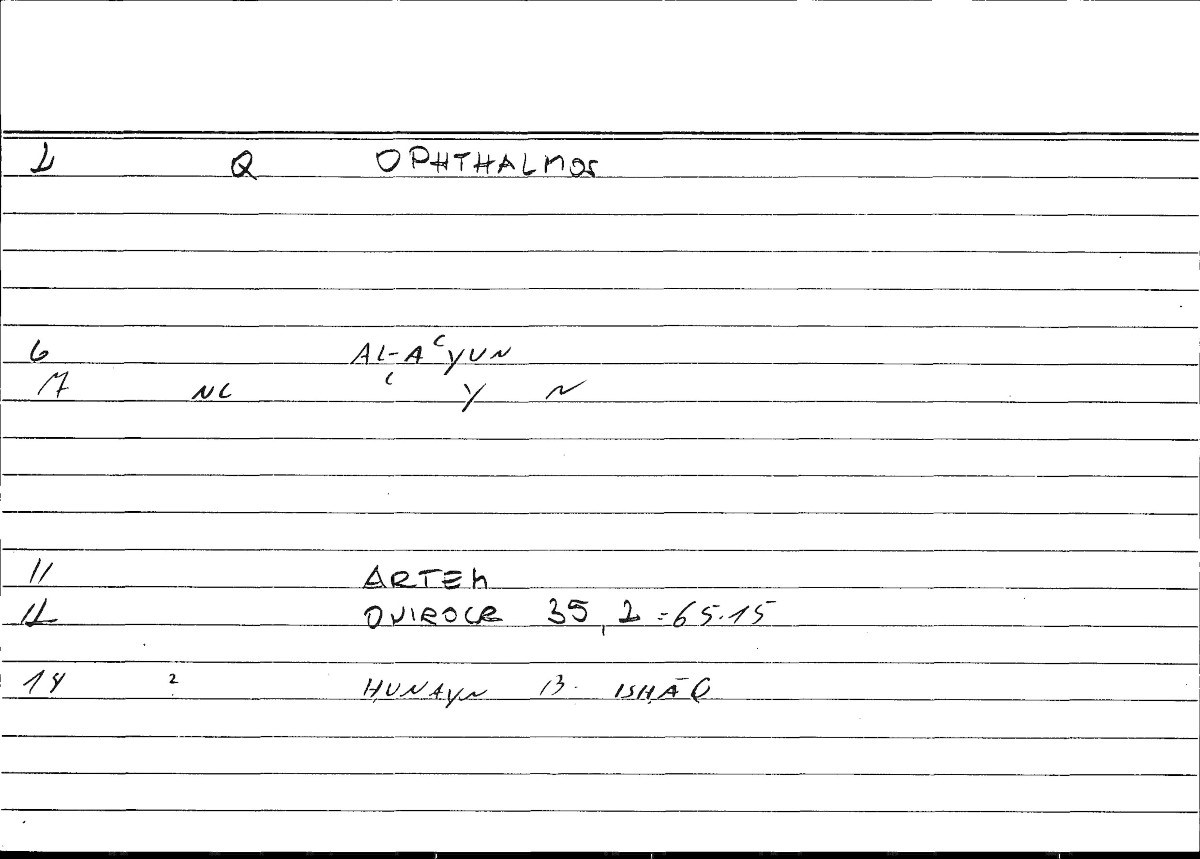 2 Q OPHTHALMOS
6 AL-AʿYUN
7 NC ʿ Y N
11 ARTEM
12 ONIROCR 35, 2 = 65.15
14 2 ḤUNAYN B. ISḤĀQ